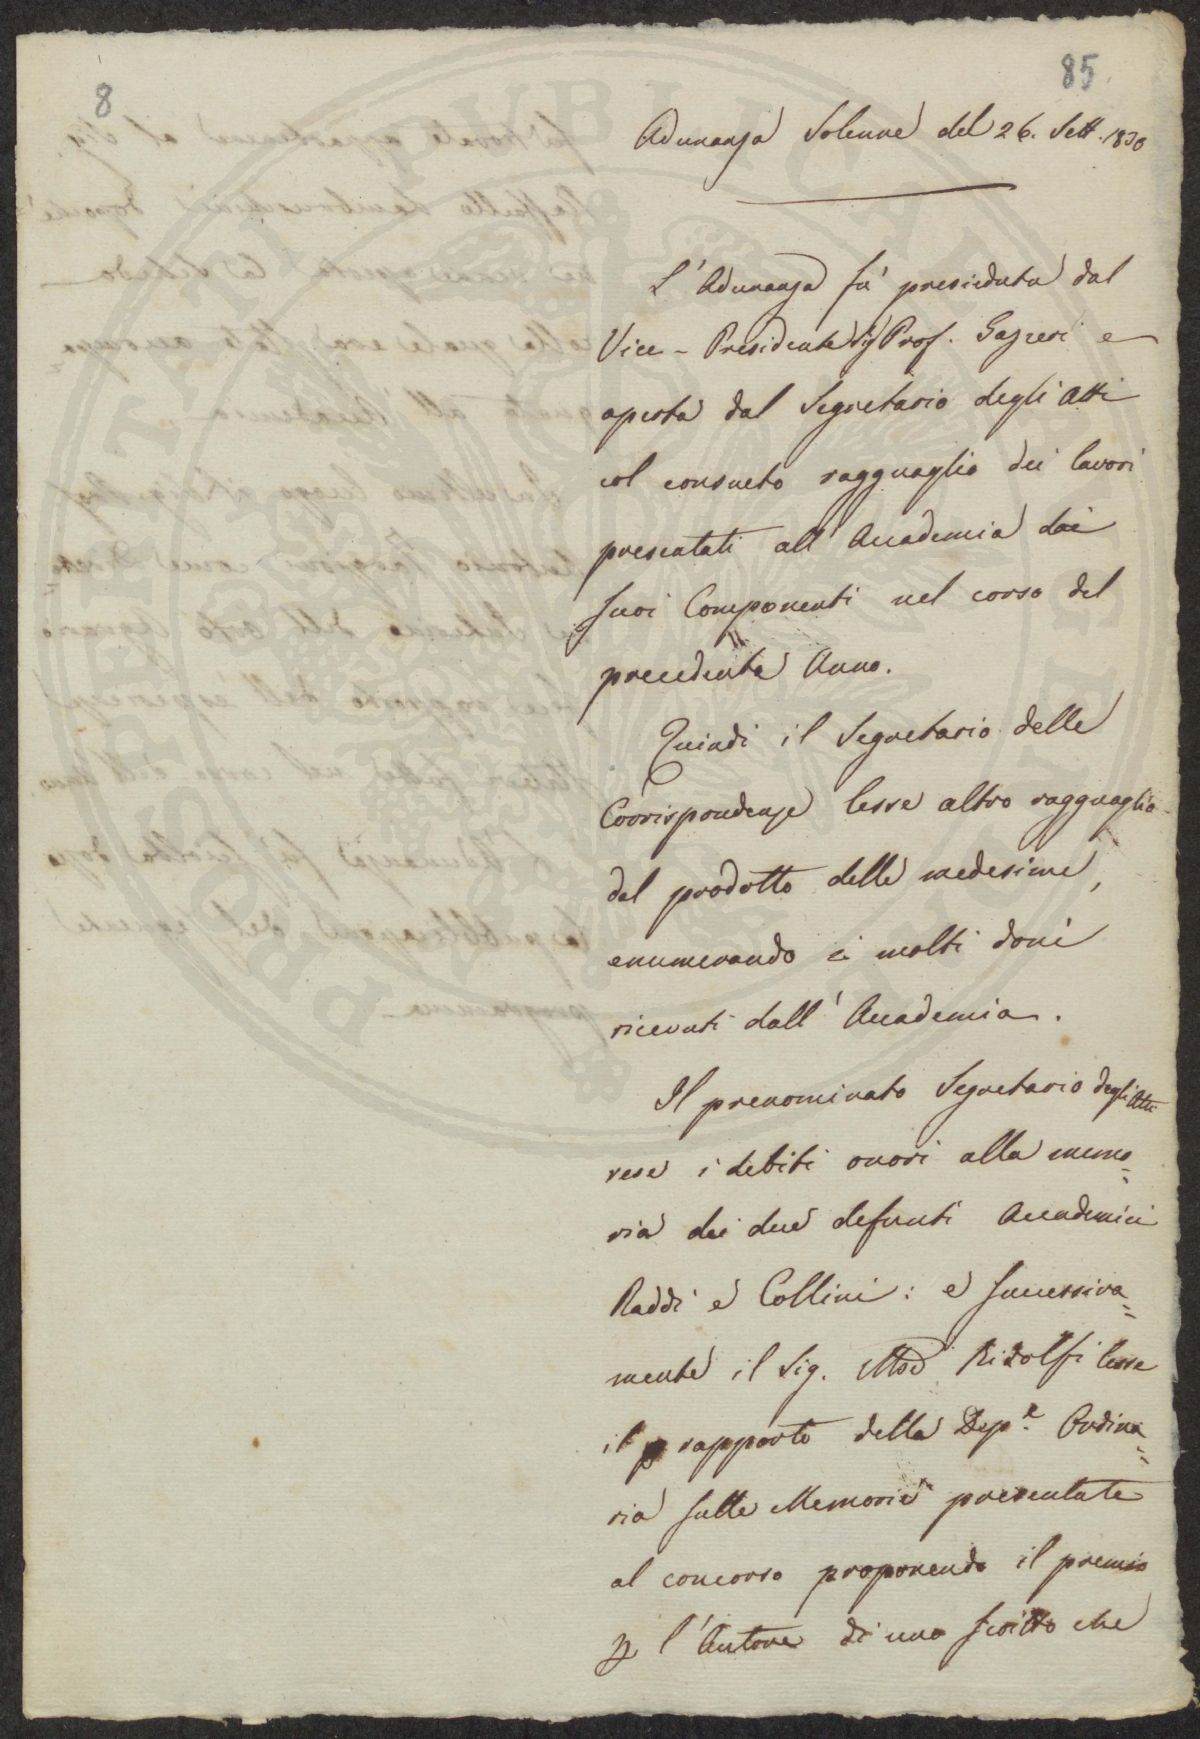 8
85
Adunanza Solenne del 26. Sett. 1830
L'Adunanza fu presieduta dal
Vice-Presidente Sig Prof. Gazzeri e
aperta dal Segretario degli Atti
col consueto ragguaglio dei lavori
presentati all'Accademia dai
suoi Componenti nel corso del
precedente Anno.
Quindi il Segretario delle
Corrispondenze lesse altro ragguaglio
del prodotto delle medesime,
enumerando i molti doni
ricevuti dall'Accademia.
Il prenominato Segretario degli Atti
rese i debiti onori alla memo=
ria dei due defunti Accademici
Raddi e Collini: e successiva=
mente il Sig. Ridolfi lesse
il rapporto della Dep.e Ordina=
ria sulle Memorie presentate
al concorso proponendo il premio
l'Autore di uno scritto che